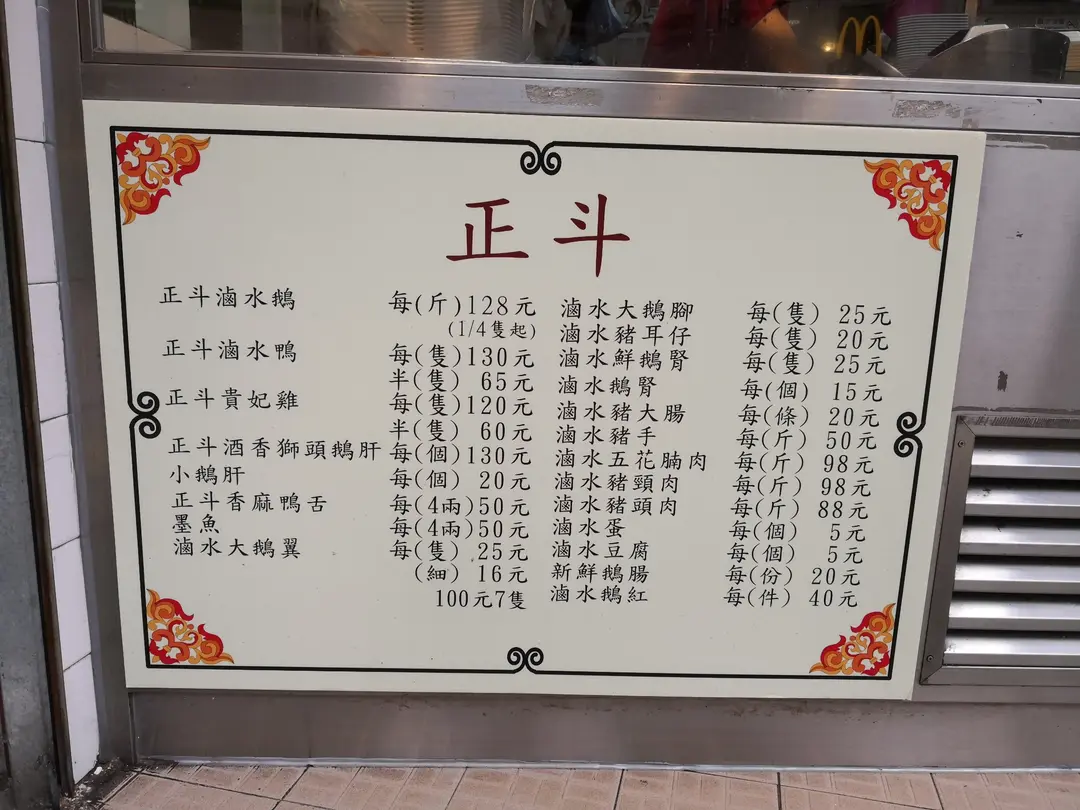 正斗
正斗滷水鵝 每(斤)128元
(1/4隻起)
正斗滷水鴨 每(隻)130元
半(隻) 65元
正斗貴妃雞 每(隻)120元
半(隻) 60元
正斗酒香獅頭鵝肝 每(個)130元
小鵝肝 每(個) 20元
正斗香麻鴨舌 每(4兩)50元
墨魚 每(4兩)50元
滷水大鵝翼 每(隻) 25元
(細) 16元
100元7隻
滷水大鵝腳 每(隻) 25元
滷水豬耳仔 每(隻) 20元
滷水鮮鵝腎 每(隻) 25元
滷水鵝腎 每(個) 15元
滷水豬大腸 每(條) 20元
滷水豬手 每(斤) 50元
滷水五花腩肉 每(斤) 98元
滷水豬頸肉 每(斤) 98元
滷水豬頭肉 每(斤) 88元
滷水蛋 每(個) 5元
滷水豆腐 每(個) 5元
新鮮鵝腸 每(份) 20元
滷水鵝紅 每(件) 40元